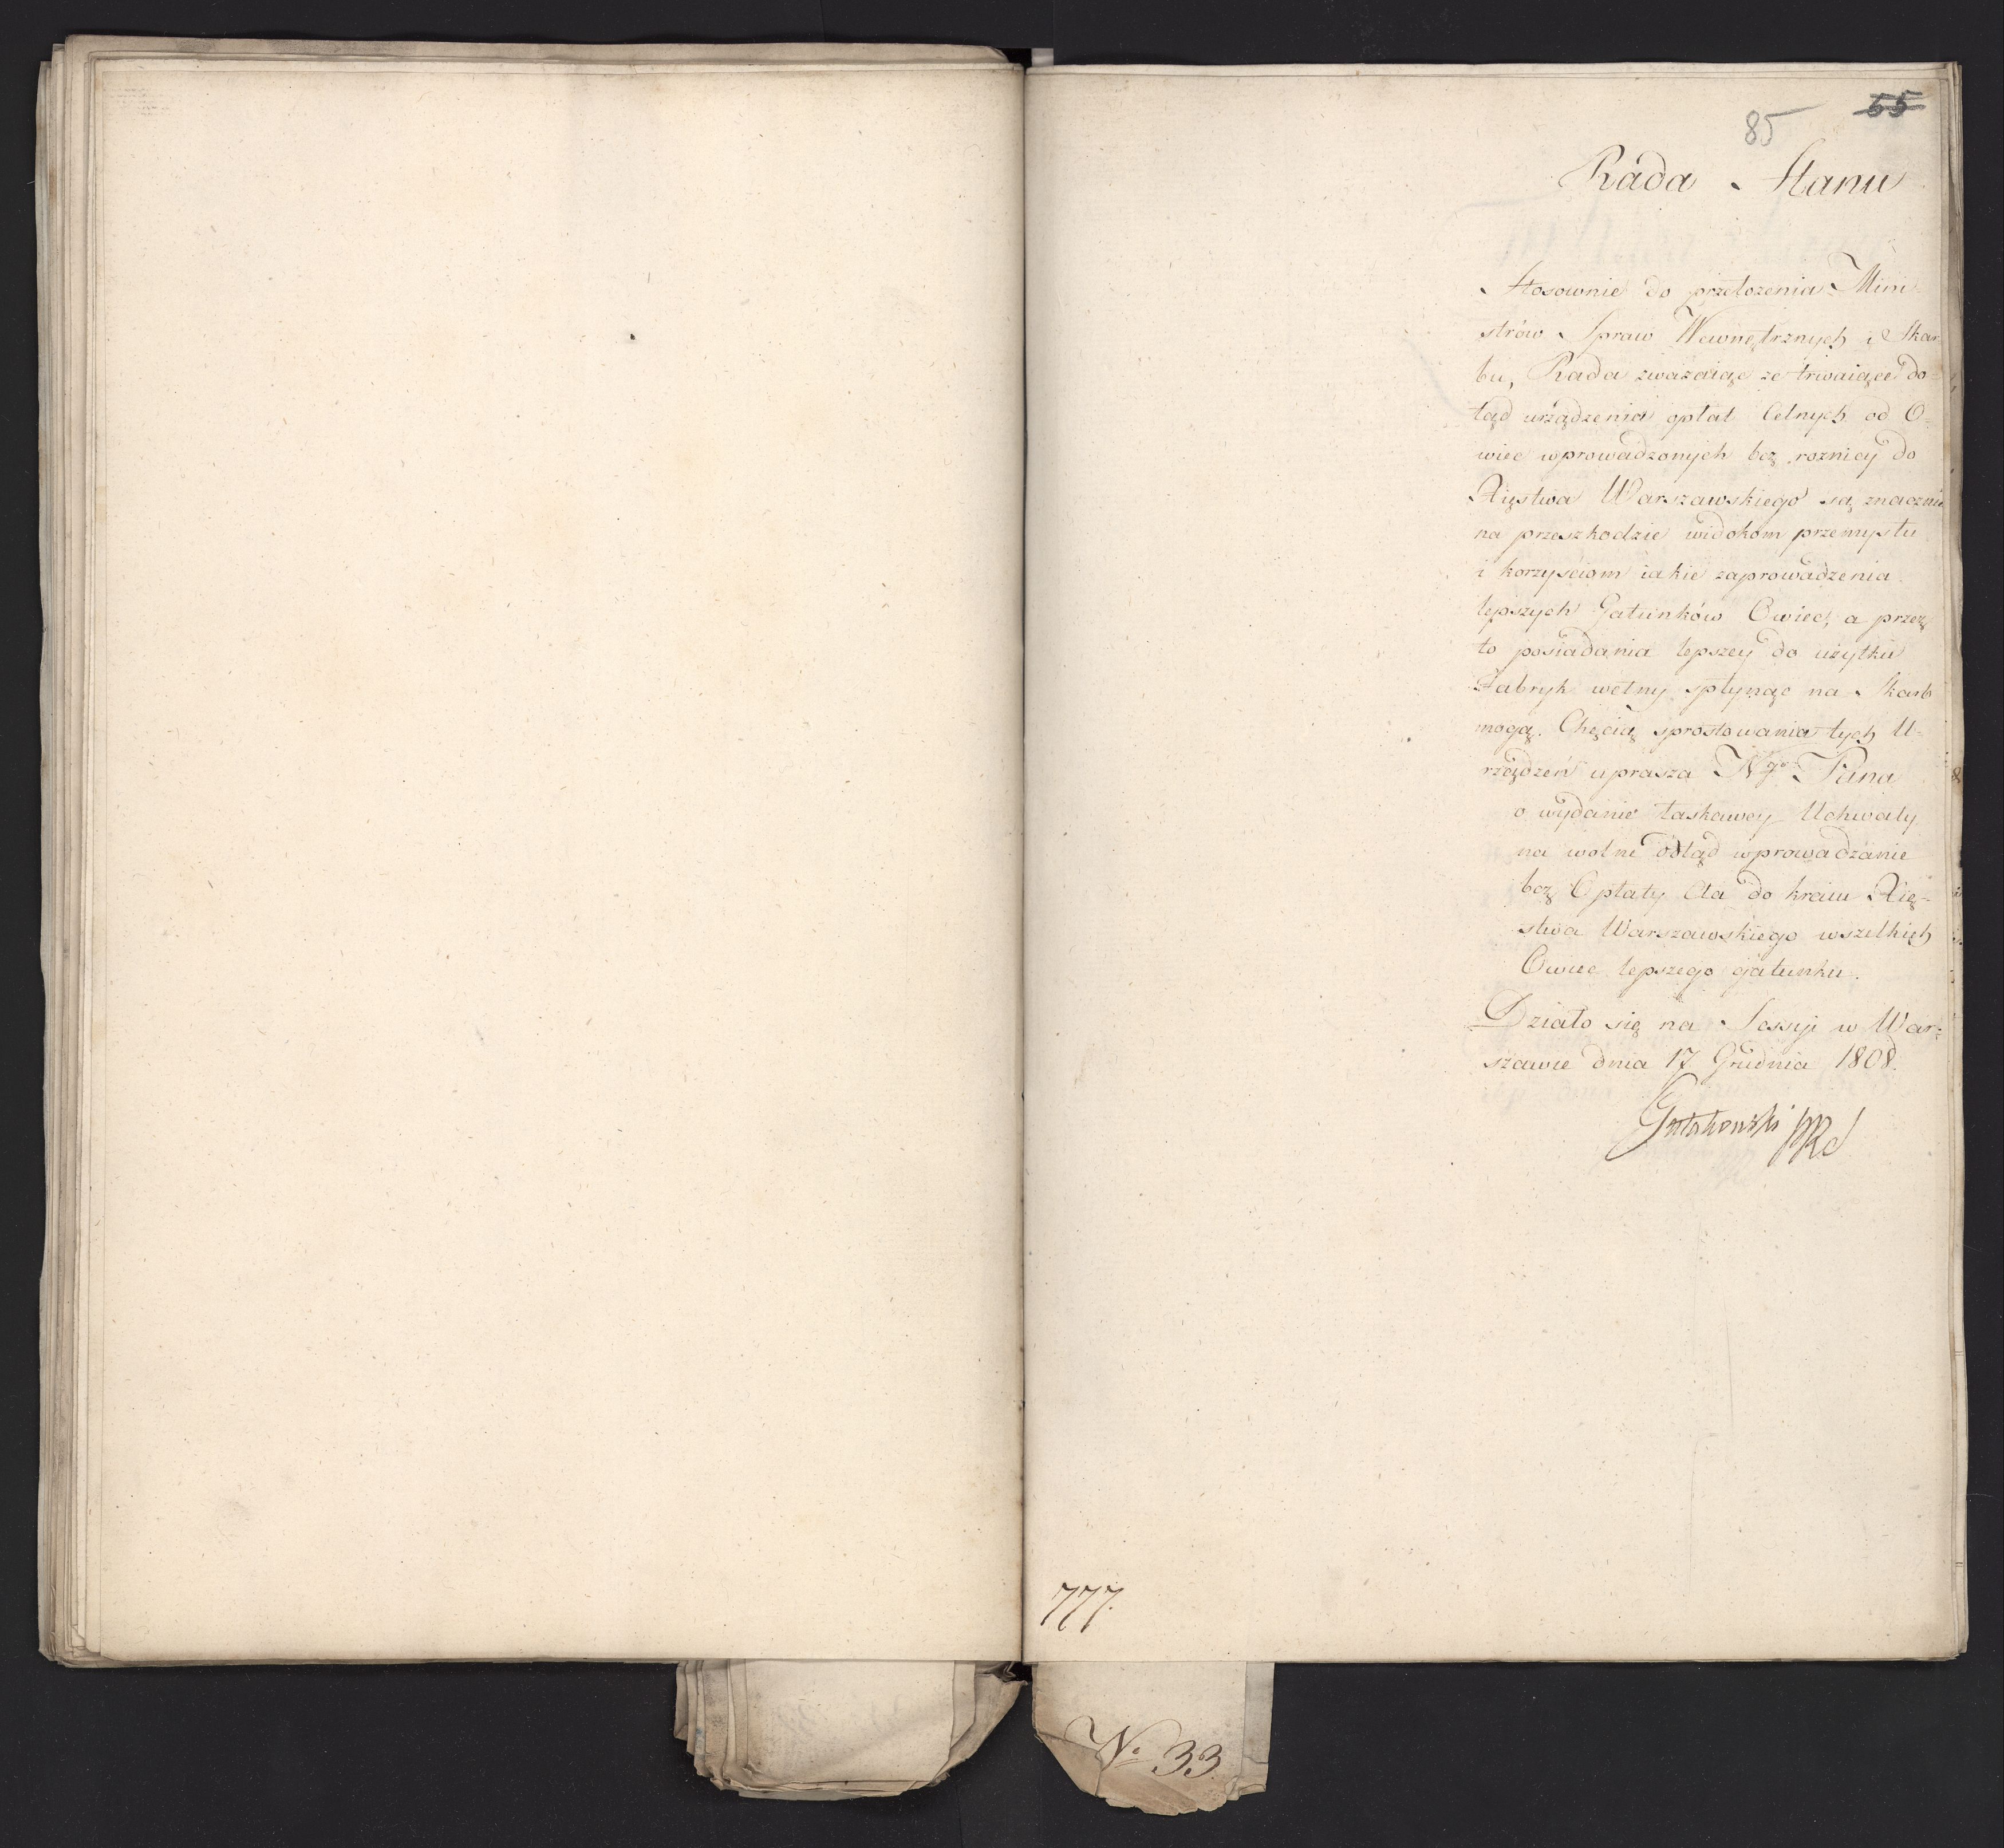 55
85
Rada Stanu
Stosownie do przełozenia Mini
strów Spraw Wewnętrznych i Skar
bu, Rada zwazaiąc ze trwaiące do-
tąd urządzenia opłat Celnych od O-
wiec wprowadzonych bez roznicy do
Xięstwa Warszawskiego są znacznie
na przeszkodzie widokom przemysłu
i korzysciom iakie zaprowadzenia
lepszych Gatunków Owiec, a przez
to posiadania lepszey do użytku
Fabryk wełny spłynąc na Skarb
mogą. Chęcią sprostowania tych U-
rządzeń uprasza N<sup>go</sup> Pana
o wydanie łaskawey Uchwały
na wolne odtąd wprowadzanie
bez Opłaty Cła do kraiu Xię-
stwa Warszawskiego wszelkich
Owiec lepszego gatunku.
Działo się na Sessyi w War-
szawie dnia 17 Grudnia 1808.
Gutakowski
777.
N<sup>o</sup> 33.